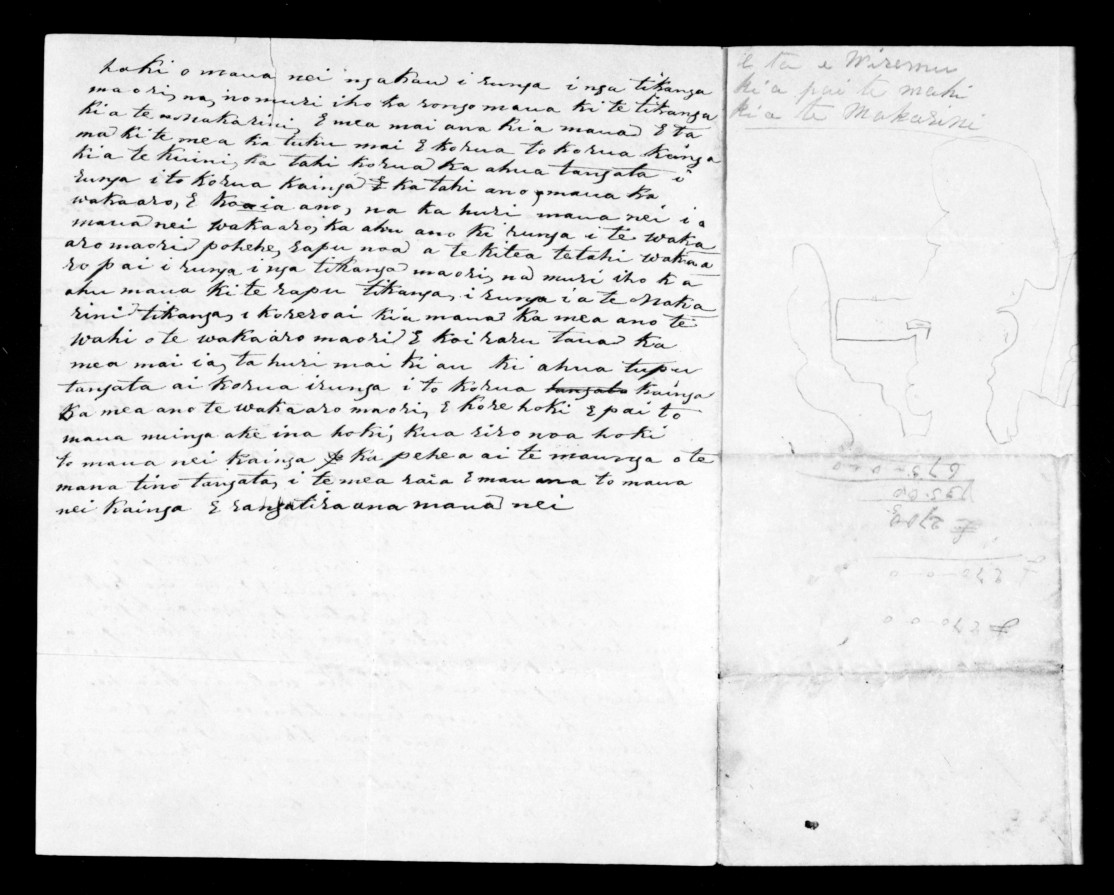 hoki o maua nei ngakau i runga i nga tikanga
maori, na, no muri iho ka rongo maua ki te tikanga
kia te Makarini, E mea mai ana kia maua E ta
ma ki te mea ka tuku mai E korua to korua kainga
kia te kuini, ka tahi korua ka ahua tangata i
runga i to korua kainga E ka tahi ano, maua ka
wakaaro, E koaia ano, na ka huri maua nei i a
maua nei wakaaro, ka ahu ano ki runga i te waka
aro maori pohehe, rapu noa a te kitea tetahi wakaa
ro pai i runga i nga tikanga maori, na muri iho ka
ahu maua ki te rapu tikanga, i runga i a te Maka
rini tikanga, i korero ai kia maua ka mea ano te
wahi o te wakaaro maori E koi raru taua ka
mea mai ia, ta huri mai ki au ki ahua tupu
tangata ai korua irunga i to korua tangata kainga
ka mea ano te wakaaro maori, E kore hoki E pai to
maua nuinga ake ina hoki, kua riro noa hoki
to maua nei kainga E ka pehea ai te maunga o te
mana tino tangata, i te mea raia E mau ana to maua
nei kainga E rangatira ana maua nei
E ta e Wiremu
kia pai te mahi
kia te Makarini
673-0-0
£ 270-0-0